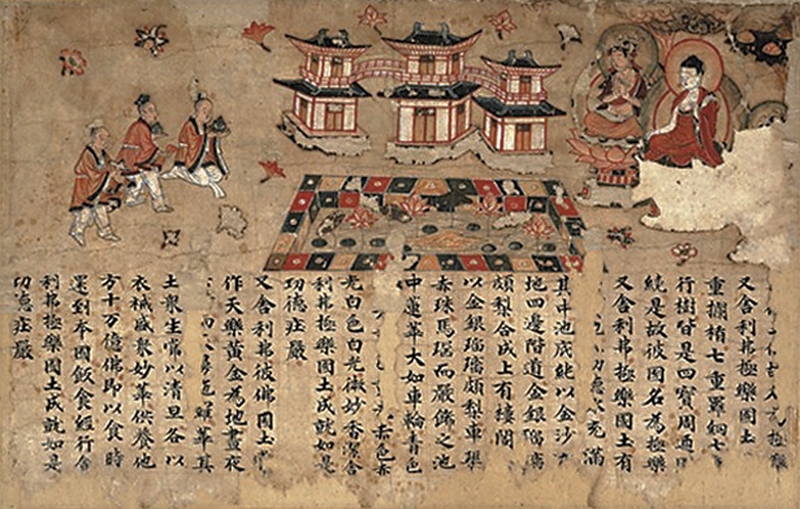 極樂
又舍利弗極樂國土
重欄楯七重羅網七
行樹皆是四寶周
繞是故彼國名為極樂
又舍利弗極樂國土有
充滿
其中池底純以金沙
地四邊階道金銀瑠璃
頗梨合成上有樓閣
以金銀瑠璃頗梨車璖
赤珠馬瑙而嚴飾之池
中蓮華大如車輪青色
赤色赤
光白色白光微妙香潔舍
利弗極樂國土成就如是
功德莊嚴
又舍利弗彼佛國土
作天樂黃金為地晝夜
華其
土衆生常以清旦各以
衣裓盛衆妙華供養他
方十万億佛即以食時
還到本國飯食經行舍
利弗極樂國土成就如是
功德莊嚴